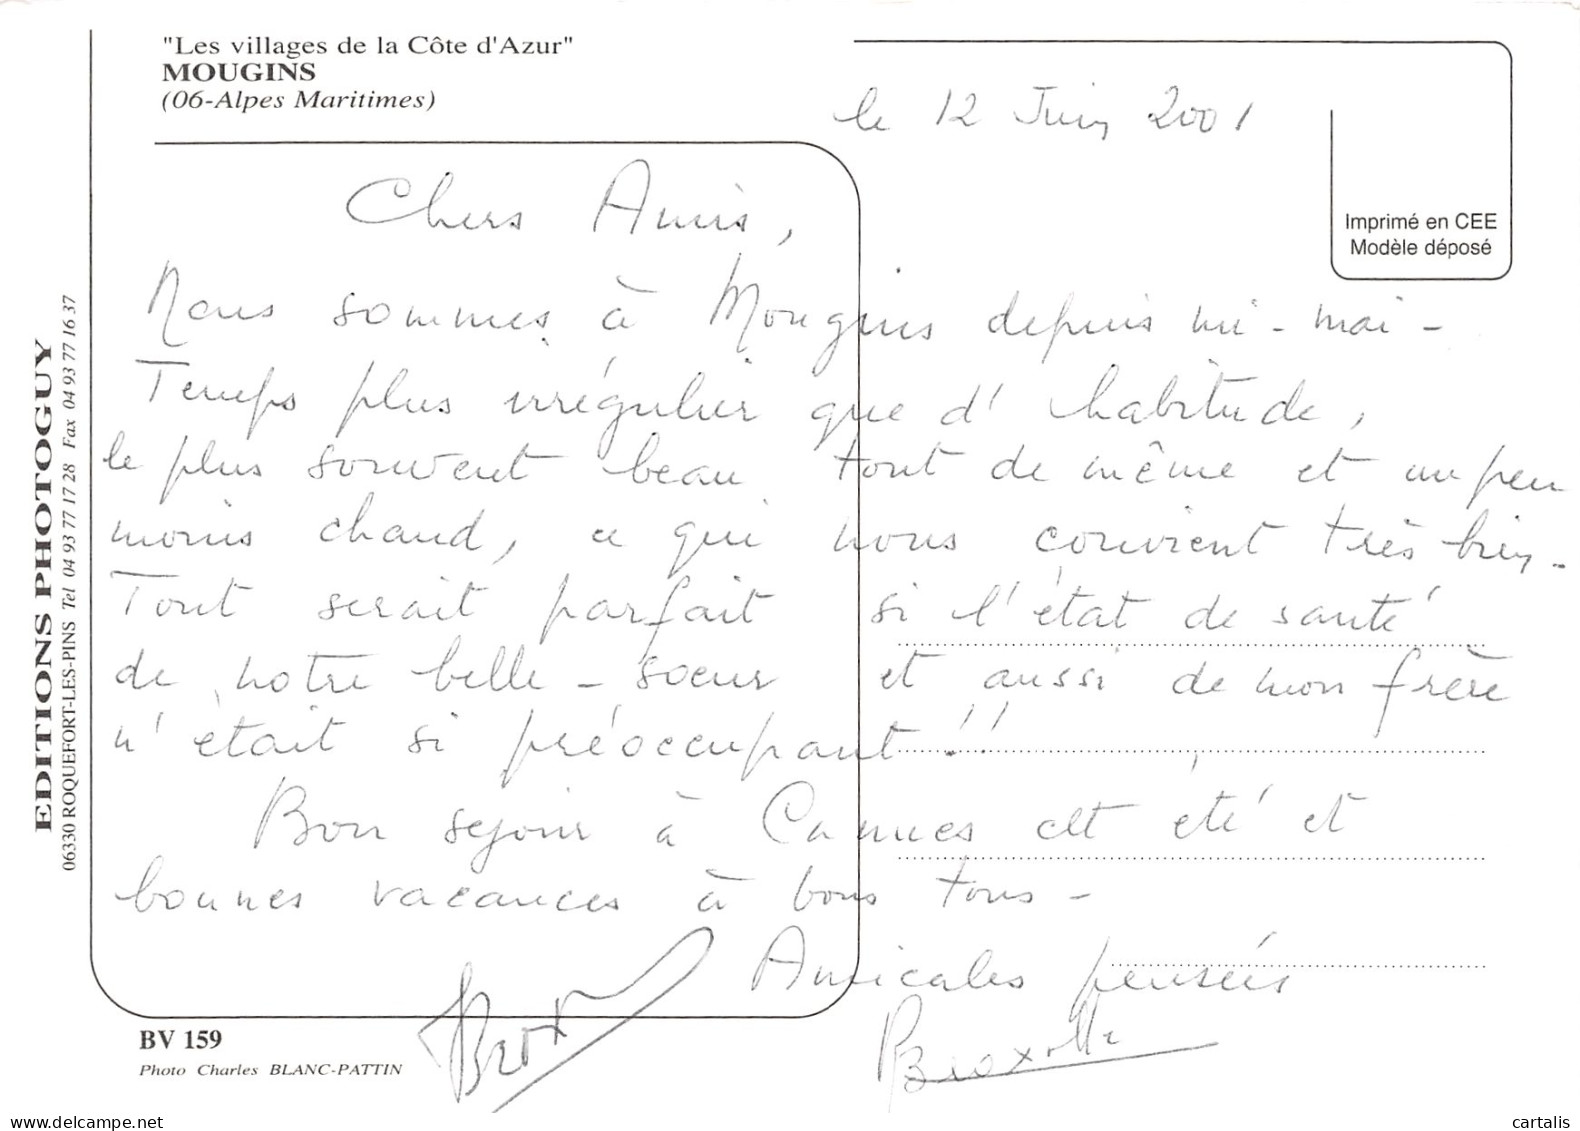 "Les villages de la Côte d'Azur"
MOUGINS
(06-Alpes Maritimes)
le 12 Juin 2001
Imprimé en CEE
Modèle déposé
Chers Amis,
Nous sommes à Mougins depuis mi-mai-
Temps plus irrégulier que d'habitude,
le plus souvent beau tout de même et un peu
moins chaud, ce qui nous convient très bien.
Tout serait parfait si l'état de santé
de notre belle-soeur et aussi de mon frère
n'était si préoccupant!!
Bon séjour à Cannes cet été et
bonnes vacances à vous tous-
Amicales pensées
EDITIONS PHOTOGUY
06330 ROQUEFORT-LES-PINS Tel 04 93 77 17 28 Fax 04 93 77 16 37
BV 159
Photo Charles BLANC-PATTIN
www.delcampe.net
cartalis